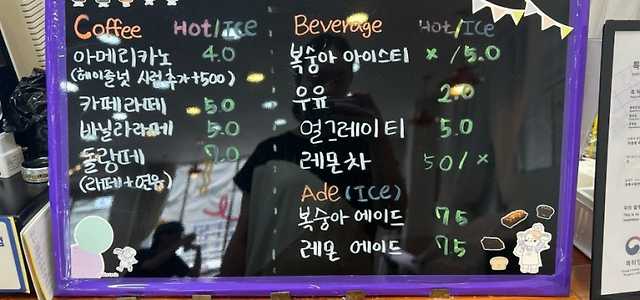 Coffee Hot/ICe
아메리카노 4.0
(헤이즐넛 시럽추가+500)
카페라떼 5.0
바닐라라떼 5.0
돌랑떼 7.0
(라떼+연유)
Beverage Hot/Ice
복숭아 아이스티 × / 5.0
우유 2.0
얼그레이 티 5.0
레몬차 50/×
Ade (ICe)
복숭아 에이드 75
레몬 에이드 75